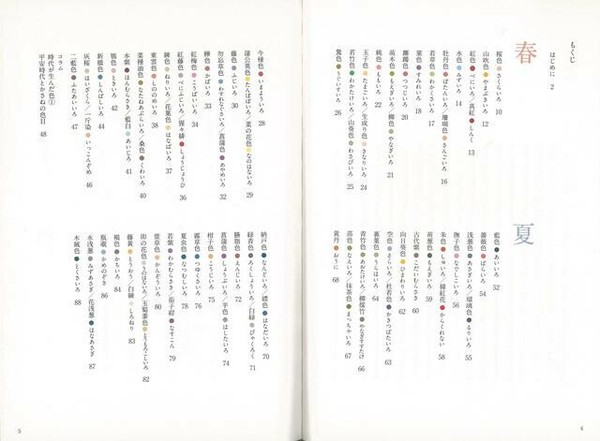 もくじ
はじめに 2
春
桜色●さくらいろ 10
山吹色●やまぶきいろ 12
紅色●べにいろ／真紅●しんく 13
水色●みずいろ 14
牡丹色●ぼたんいろ／珊瑚色●さんごいろ 16
若草色●わかくさいろ 17
菫色●すみれいろ 18
躑躅色●つつじいろ 20
萌木色●もえぎいろ／柳色●やなぎいろ 21
桃色●ももいろ 22
玉子色●たまごいろ／生成り色●きなりいろ 24
若竹色●わかたけいろ／山葵色●わさびいろ 25
鶯色●うぐいすいろ 26
夏
藍色●あいいろ 52
薔薇色●ばらいろ 54
浅葱色●あさぎいろ／瑠璃色●るりいろ 55
撫子色●なでしこいろ 56
朱色●しゅいろ／韓紅花●からくれない 58
萌葱色●もえぎいろ 59
古代紫●こだいむらさき 60
向日葵色●ひまわりいろ 62
空色●そらいろ／杜若色●かきつばたいろ 63
裏葉色●うらはいろ 64
青竹色●あおたけいろ／柳煤竹●やなぎすすたけ 66
苗色●なえいろ／抹茶色●まっちゃいろ 67
黄丹●おうに 68
4
今様色●いまよういろ 28
蒲公英色●たんぽぽいろ／菜の花色●なのはないろ 29
藤色●ふじいろ 30
勿忘草色●わすれなぐさいろ／菖蒲色●あやめいろ 32
樺色●かばいろ 33
紅梅色●こうばいいろ 34
紅藤色●べにふじいろ／猩々緋●しょうじょうひ 36
練色●ねりいろ／花葉色●はなばいろ 37
東雲色●しののめいろ 38
菜種油色●なたねあぶらいろ／桑色●くわいろ 40
本紫●ほんむらさき／藍白●あいじろ 41
鴇色●ときいろ 42
新橋色●しんばしいろ 44
灰桜●はいざくら／一斤染●いっこんぞめ 46
二藍色●ふたあいいろ 47
コラム
時代が生んだ色①
平安時代とかさねの色目 48
納戸色●なんどいろ／縹色●はなだいろ 70
緑青色●ろくしょういろ／白緑●びゃくろく 71
臙脂色●えんじいろ 72
菖蒲色●しょうぶいろ／半色●はしたいろ 74
柑子色●こうじいろ 75
露草色●つゆくさいろ 76
夏虫色●なつむしいろ 78
若紫●わかむらさき／茄子紺●なすこん 79
萱草色●かんぞういろ 80
卯の花色●うのはないろ／玉蜀黍色●とうもろこしいろ 82
藤黄●とうおう／白練●しろねり 83
褐色●かちいろ 84
瓶覗●かめのぞき 86
水浅葱●みずあさぎ／花浅葱●はなあさぎ 87
木賊色●とくさいろ 88
5